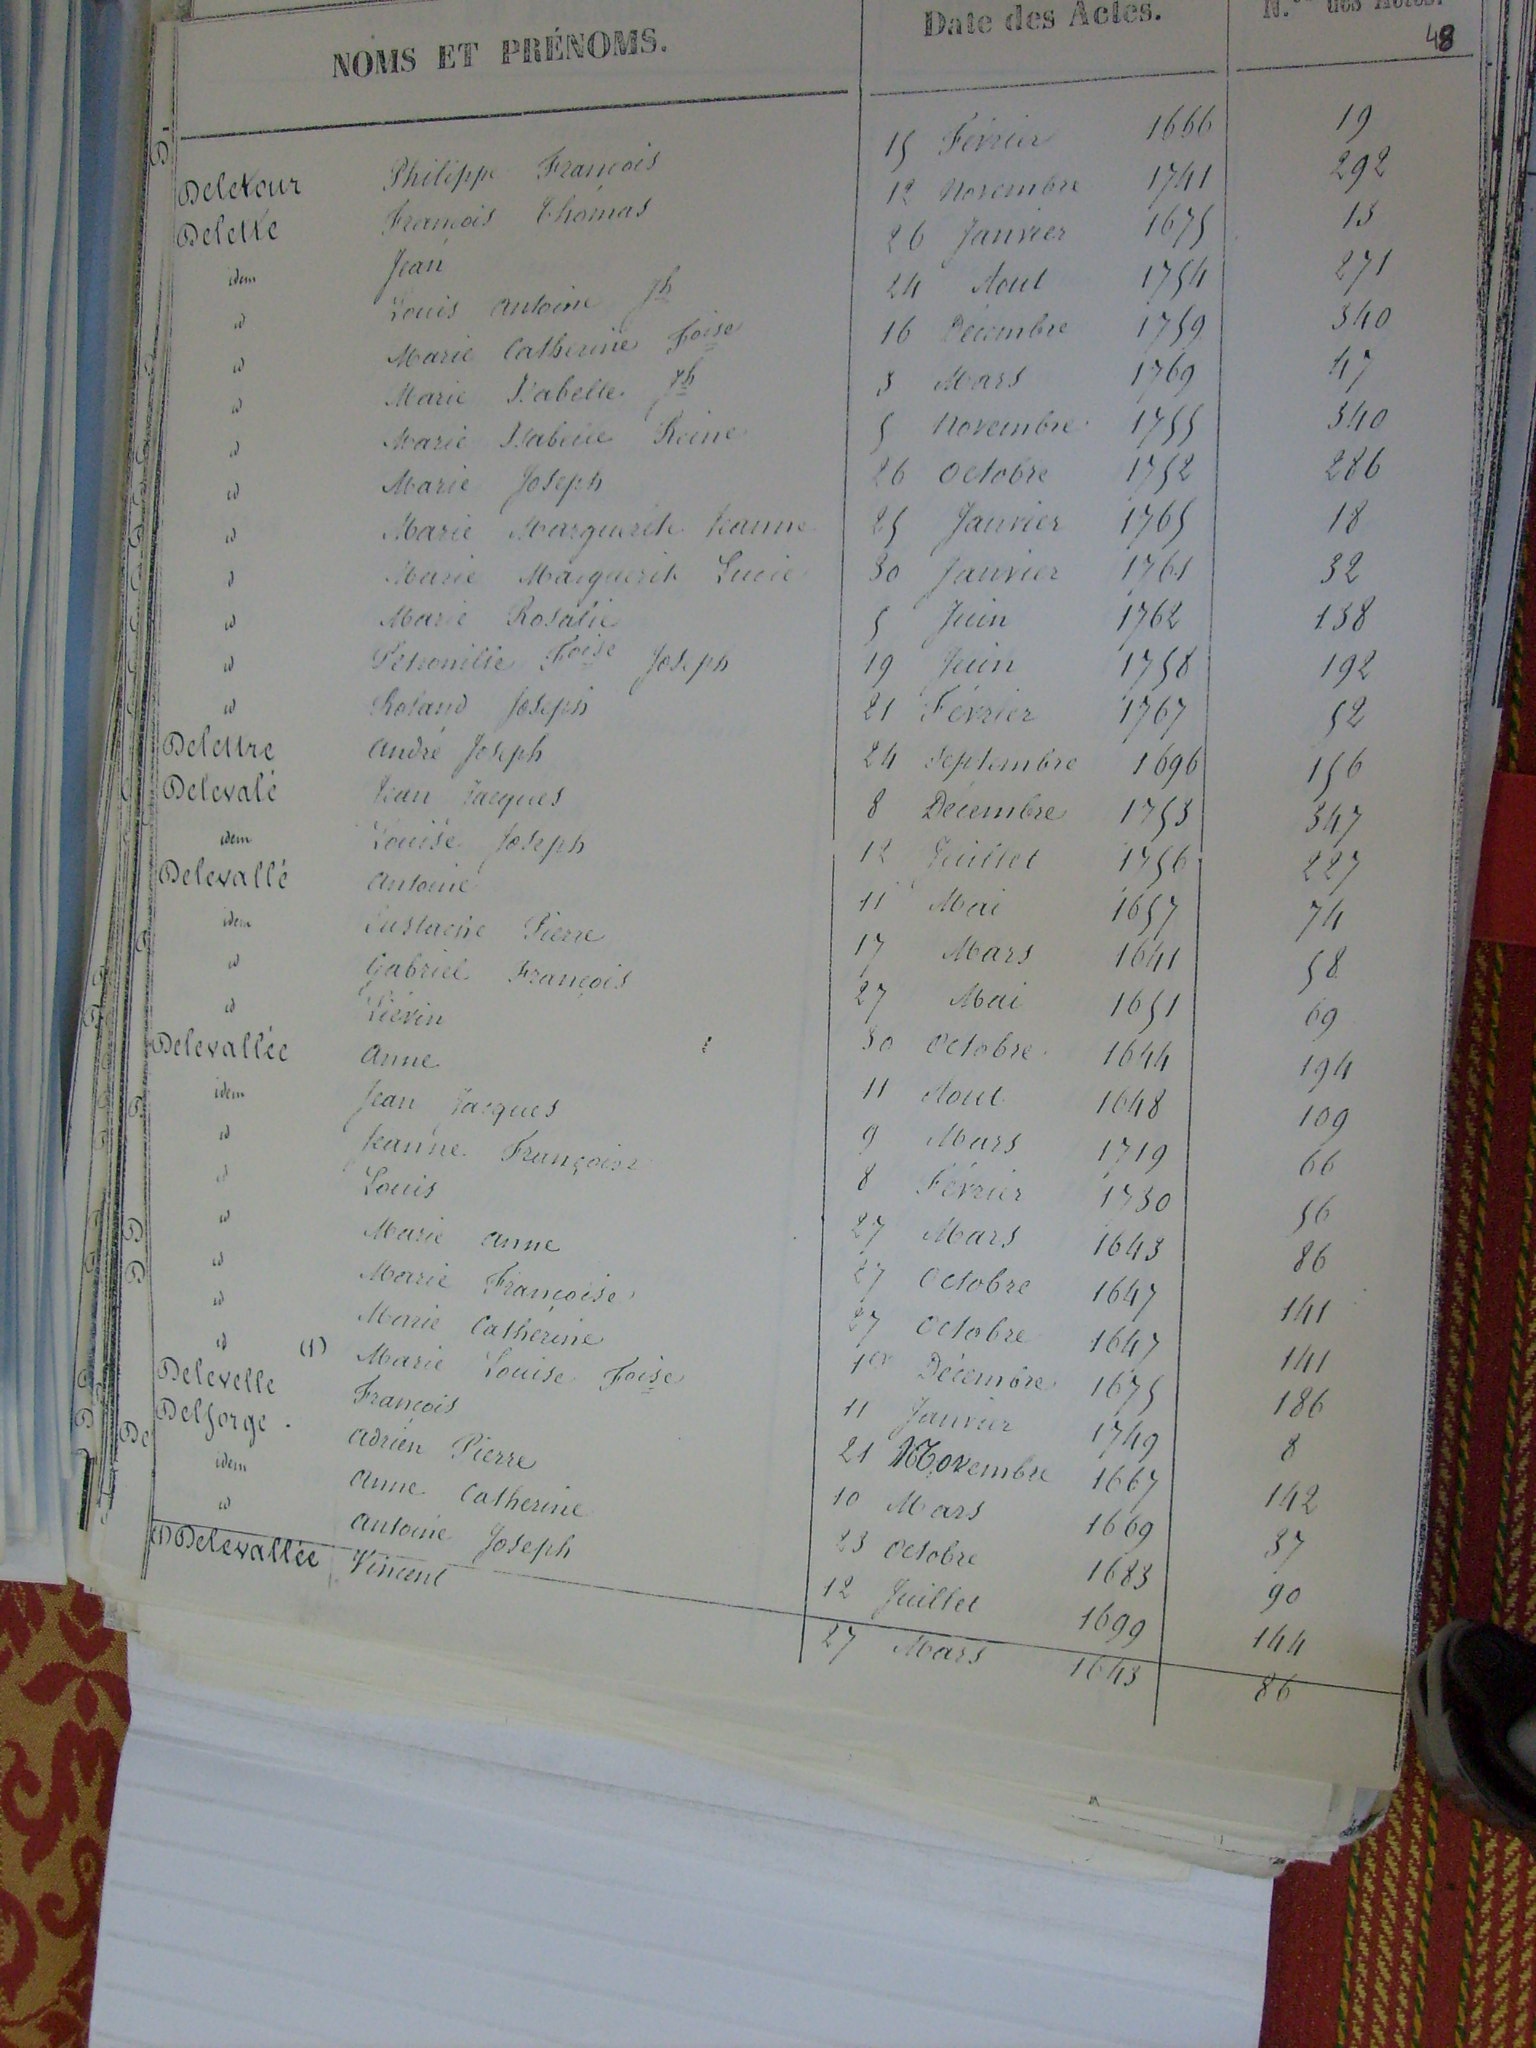 NOMS ET PRÉNOMS. Date des Actes. N.os des Actes.
48
Deletour Philippe François 15 Février 1666 19
Delette François Thomas 12 Novembre 1741 292
idem Jean 26 Janvier 1675 13
id Louis Antoine Jh 24 Aout 1754 271
id Marie Catherine Foise 16 Décembre 1759 340
id Marie Isabelle Jh 3 Mars 1769 47
id Marie Isabelle Reine 5 Novembre 1755 340
id Marie Joseph 26 Octobre 1752 286
id Marie Marguerite Jeanne 25 Janvier 1765 18
id Marie Marguerite Lucie 30 Janvier 1761 32
id Marie Rosalie 5 Juin 1762 138
id Petronille Foise Joseph 19 Juin 1758 192
id Roland Joseph 21 Février 1767 52
Delettre André Joseph 24 Septembre 1696 156
Delevalé Jean Jacques 8 Décembre 1753 347
idem Louise Joseph 12 Juillet 1756 227
Delevallé Antoine 11 Mai 1657 74
idem Eustache Pierre 17 Mars 1641 58
id Gabriel François 27 Mai 1651 69
id Liévin 30 Octobre 1644 194
Delevallée Anne 11 Aout 1648 109
idem Jean Jacques 9 Mars 1719 66
id Jeanne Françoise 8 Février 1730 56
id Louis 27 Mars 1643 86
id Marie Anne 27 Octobre 1647 141
id Marie Françoise 27 Octobre 1647 141
id Marie Catherine 1er Décembre 1675 186
id (1) Marie Louise Foise 11 Janvier 1749 8
Delevelle François 21 Novembre 1667 142
Delforge Adrien Pierre 10 Mars 1669 37
idem Anne Catherine 23 Octobre 1683 90
id Antoine Joseph 12 Juillet 1699 144
(1) Delevallée Vincent 27 Mars 1643 86